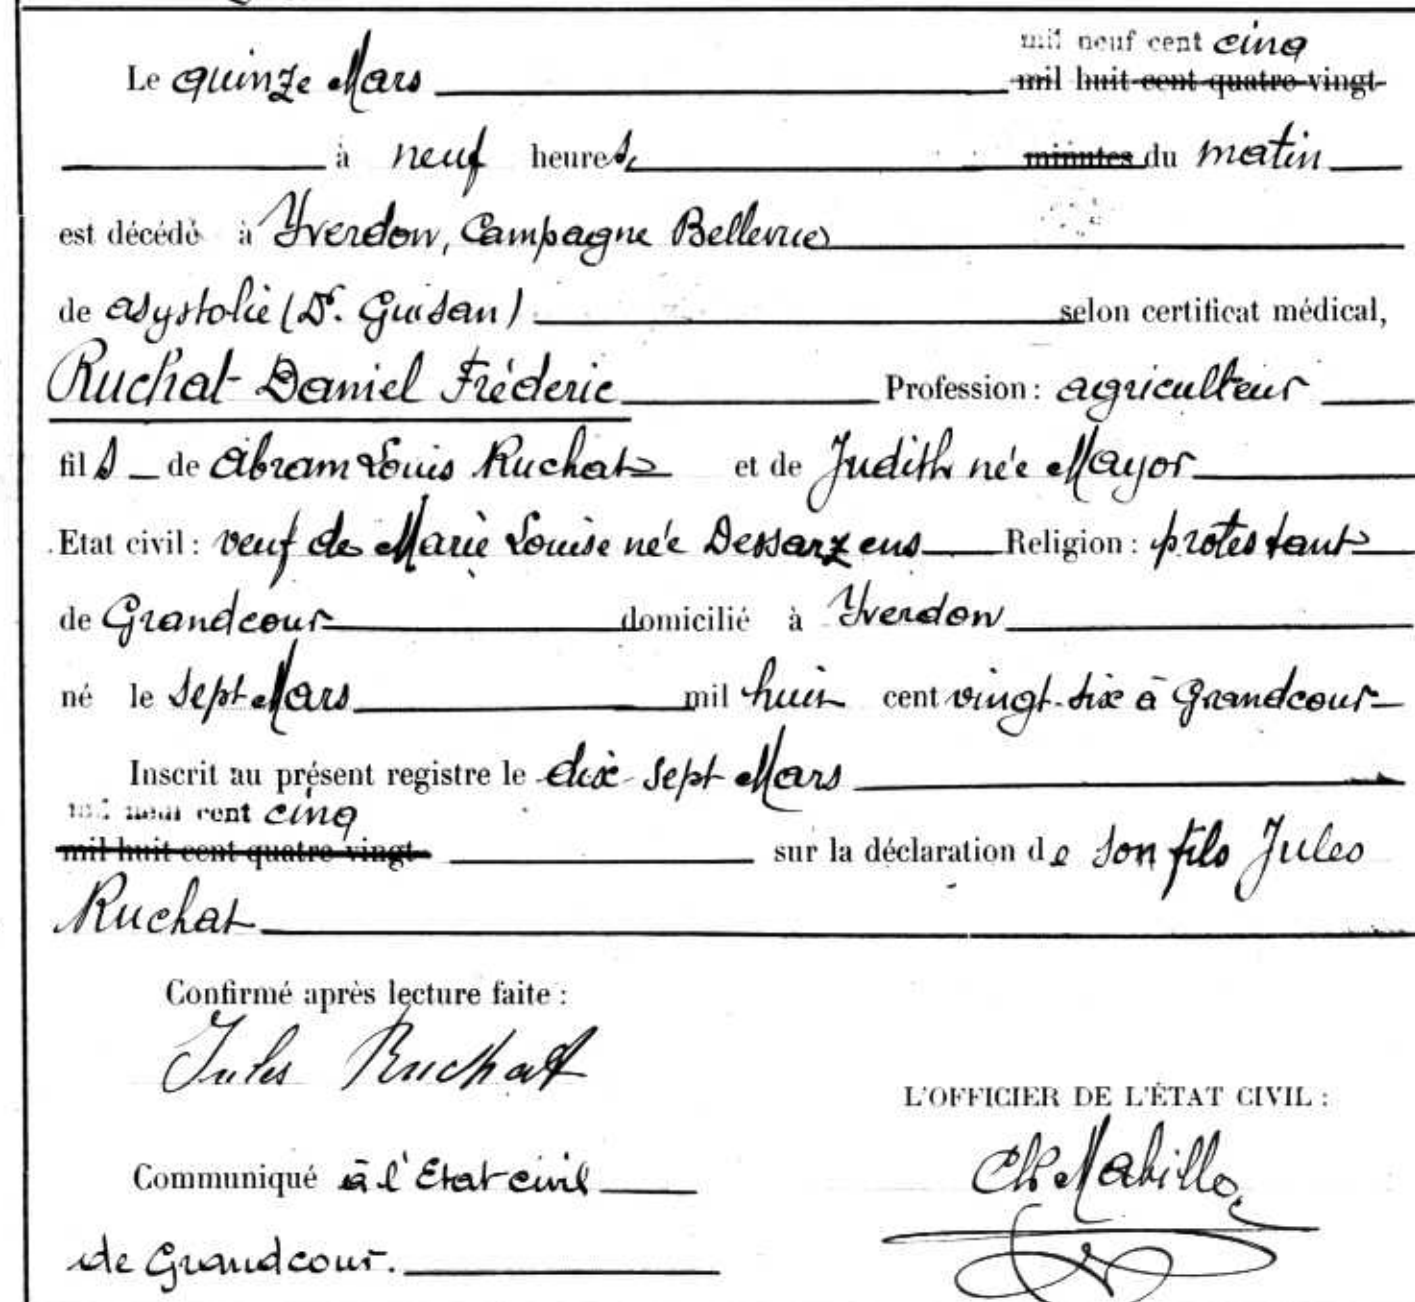 mil neuf cent cinq
Le quinze Mars mil huit cent quatre-vingt-
à neuf heures, minutes du matin
est décédé à Yverdon, Campagne Bellevue
de asystolie (Dr. Guisan) selon certificat médical,
Ruchat Daniel Fréderic Profession : agriculteur
fils de Abram Louis Ruchat et de Judith née Mayor
Etat civil : veuf de Marie Louise née Dessarzens Religion : protestant
de Grandcour domicilié à Yverdon
né le sept Mars mil huit cent vingt-six à Grandcour
Inscrit au présent registre le dix-sept Mars
mil neuf cent cinq
mil huit cent quatre-vingt- sur la déclaration de son fils Jules
Ruchat
Confirmé après lecture faite :
Jules Ruchat
L'OFFICIER DE L'ÉTAT CIVIL :
Communiqué à l'Etat civil
de Grandcour.